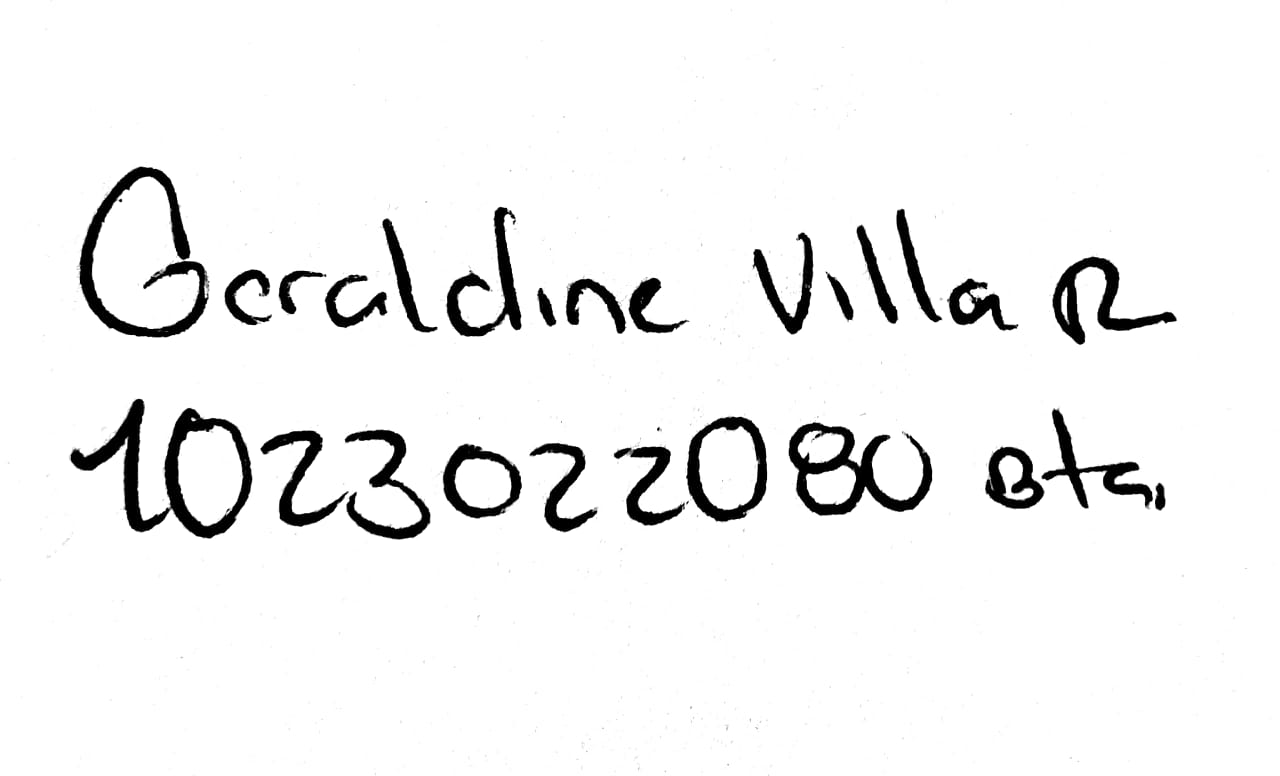 Geraldine Villa R
1023022080 Bta.